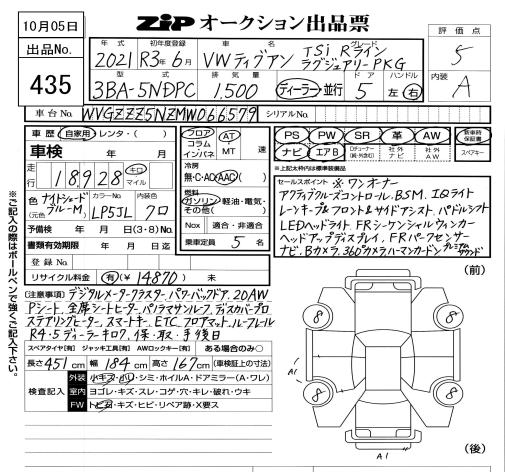 10月05日
ZIP オークション出品票
評価点
5
出品No.
435
年式
2021
初年度登録
R3年6月
車名
VWティグアン
グレード
TSi Rライン
ラグジュアリーPKG
内装
A
型式
3BA-5NDPC
排気量
1,500
ディーラー・並行
ドア
5
ハンドル
左 右
車台No.
WVGZZZ5NZMW066579
シリアルNo.
車歴 自家用・レンタ・( )
車検 年 月
走行
18928
キロ
マイル
色
(元色)
ナイトシェード
ブルーM
カラーNo.
LP5J
クロ
予備検 年 月 日(3・8)No.
書類有効期限 年 月 日迄
登録No.
リサイクル料金 有(¥14870) 未
フロア
コラム
インパネ
AT
MT
速
冷房
無・C・AC(AAC)
燃料
ガソリン・軽油・電気・
その他( )
Nox 適合・非適合
乗車定員 5 名
PS PW SR 革 AW
新車時
保証書
ナビ エアB
社外
ナビ
社外
AW
スペアキー
※上記太枠内は標準装備品
セールスポイント ※ワンオーナー
アクティブクルーズコントロール、BSM、IQライト
レーンキープ&フロント&サイドアシスト、パドルシフト
LEDヘッドライト、FRシーケンシャルウィンカー
ヘッドアップディスプレイ、FRパークセンサー
ナビ、Bカメラ、360°カメラ、ハーマンカードン プレミアムサウンド
※ご記入の際はボールペンで強くご記入下さい。
[注意事項] デジタルメータークラスター、パワーバックドア、20AW
Pシート、全席シートヒーター、パノラマサンルーフ、ディスカバープロ
ステアリングヒーター、スマートキー、ETC、フロアマット、ルーフレール
R4.5ディーラーキロワ、保・取・手後日
スペアタイヤ[有] ジャッキ工具[有] AWロックキー[有] ある場合のみ○
長さ451cm 幅184cm 高さ167cm (車検証上の寸法)
検査記入
外装 小キズ・凹・シミ・ホイルA・ドアミラー(A・ワレ)
室内 ヨゴレ・キズ・スレ・コゲ・穴・キレ・破れ・ウキ
FW トビ石・キズ・ヒビ・リペア跡・X要ス
(前)
8
8
A1
8
8
A1
(後)